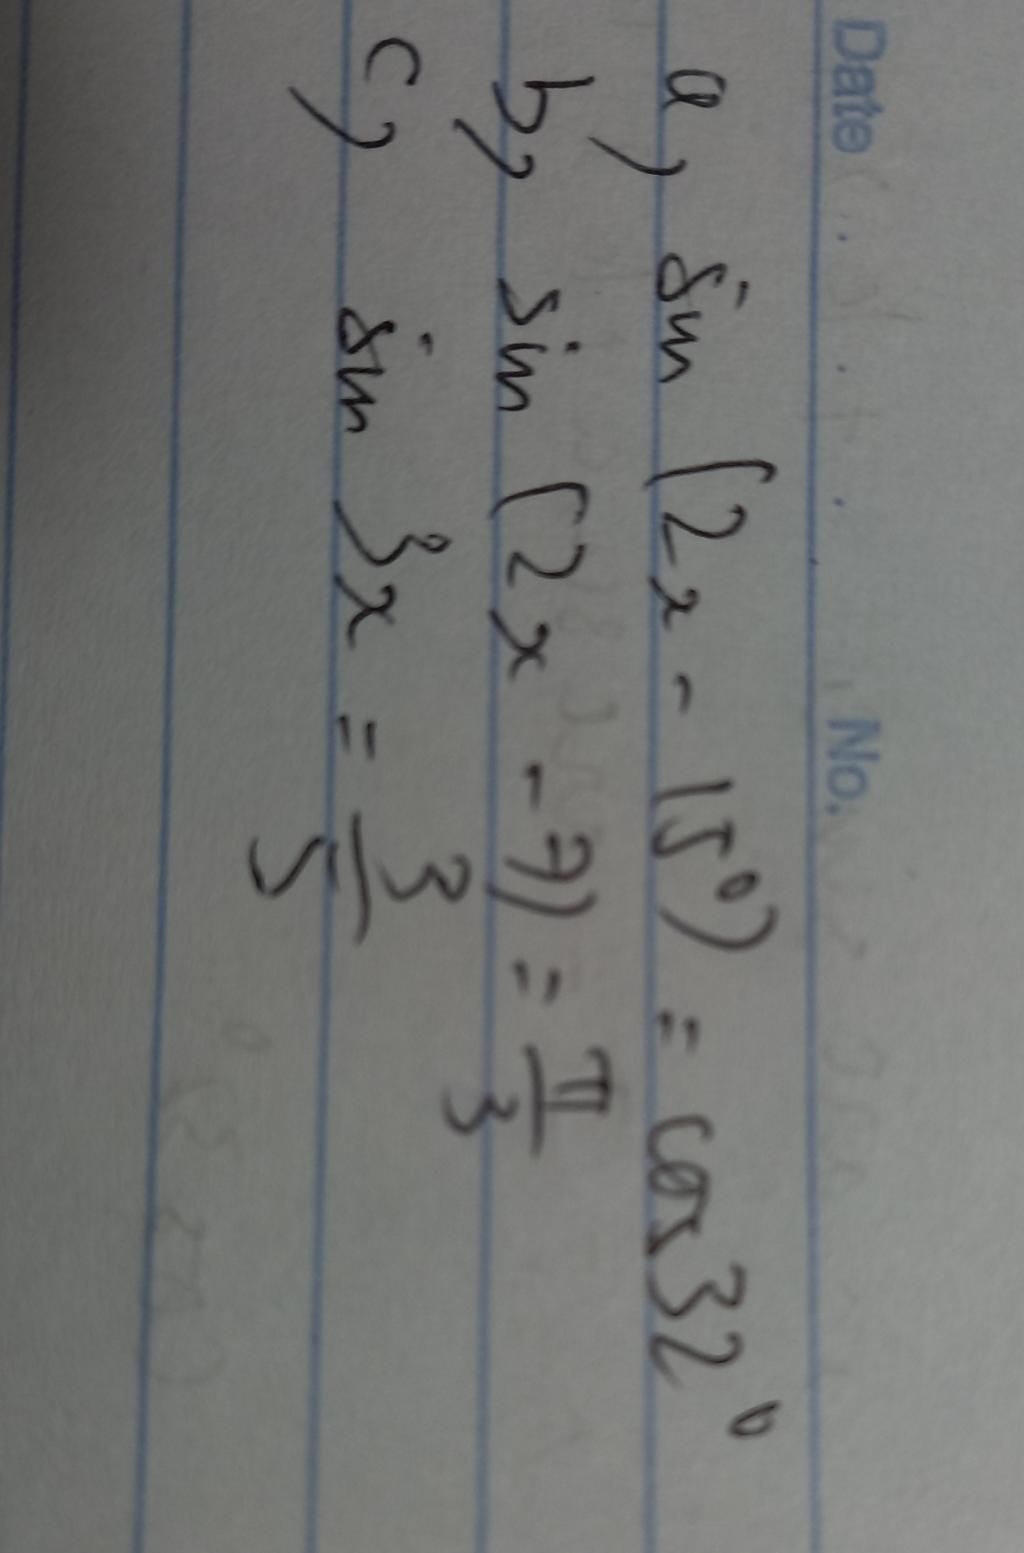 Date . . . No.
a, sin (2x - 15⁰) = cos32⁰
b, sin (2x - 7) = π/3
c, sin 3x = 3/5